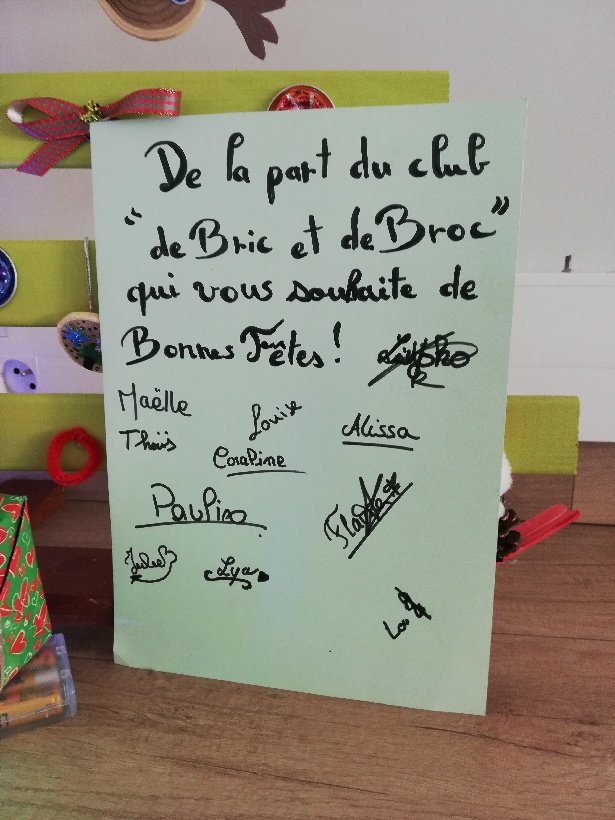 De la part du club
"de Bric et de Broc"
qui vous souhaite de
Bonnes Fêtes !
Maëlle
Louise
Alissa
Thaïs
Coraline
Pauline
Jules
Lya
Lou